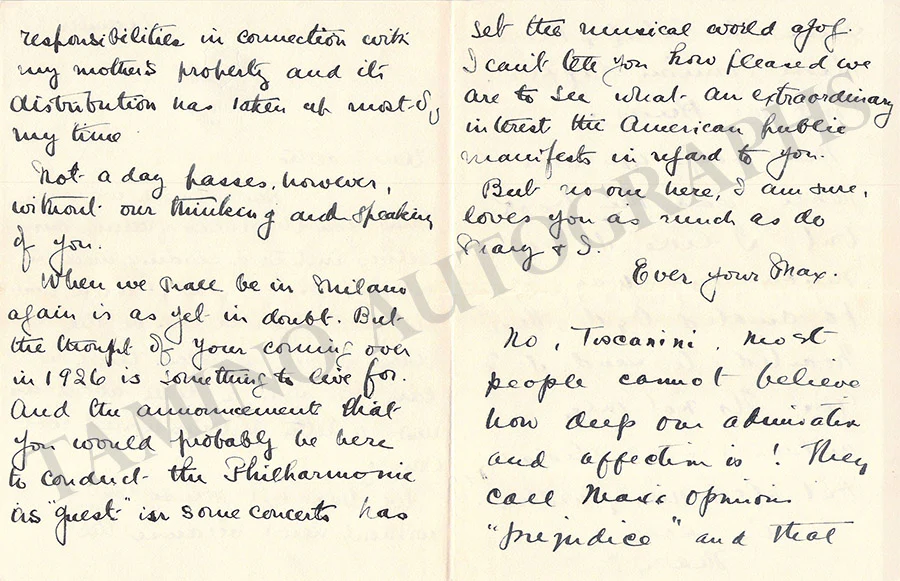 responsibilities in connection with
my mother's property and its
distribution has taken up most of
my time
Not a day passes, however,
without our thinking and speaking
of you.
When we shall be in Milano
again is as yet in doubt. But
the thought of your coming over
in 1926 is something to live for.
And the announcement that
you would probably be here
to conduct the Philharmonic
as "guest" in some concerts has
set the musical world agog.
I can't tell you how pleased we
are to see what an extraordinary
interest the American public
manifests in regard to you.
But no one here, I am sure,
loves you as much as do
Mary & I.
Ever your Max.
No, Toscanini, most
people cannot believe
how deep our admiration
and affection is! They
call Max's opinions
"prejudice" and that
TAMINO AUTOGRAPHS